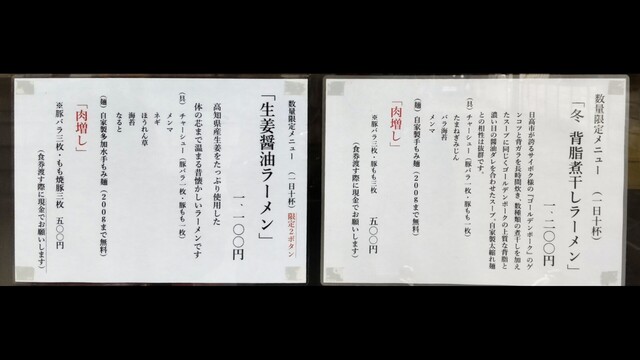 数量限定メニュー （一日十杯）
「冬 背脂煮干しラーメン」
一・二〇〇円
日高市が誇るサイボク様の『ゴールデンポーク』のゲ
ンコツと背ガラを長時間炊き、数種類の煮干しを加え
たスープに同じくゴールデンポークの上質な背脂と
濃い目の醤油ダレを合わせたスープ、自家製太縮れ麺
との相性は抜群です。
（具）チャーシュー（豚バラ一枚・豚もも一枚）
たまねぎみじん
バラ海苔
メンマ
（麺）自家製手もみ麺（２００gまで無料）
「肉増し」
※豚バラ三枚・豚もも三枚 五〇〇円
（食券渡す際に現金でお願いします）
数量限定メニュー （一日十杯）限定２ボタン
「生姜醤油ラーメン」
一・一〇〇円
高知県産生姜をたっぷり使用した
体の芯まで温まる昔懐かしいラーメンです
（具）チャーシュー（豚バラ一枚・豚もも一枚）
メンマ
ネギ
ほうれん草
海苔
なると
（麺）自家製多加水手もみ麺（２００gまで無料）
「肉増し」
※豚バラ三枚・もも焼豚三枚 五〇〇円
（食券渡す際に現金でお願いします）